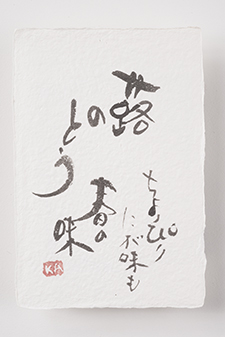 蕗
の
とう
ちょっぴり
にが味も
春の
味